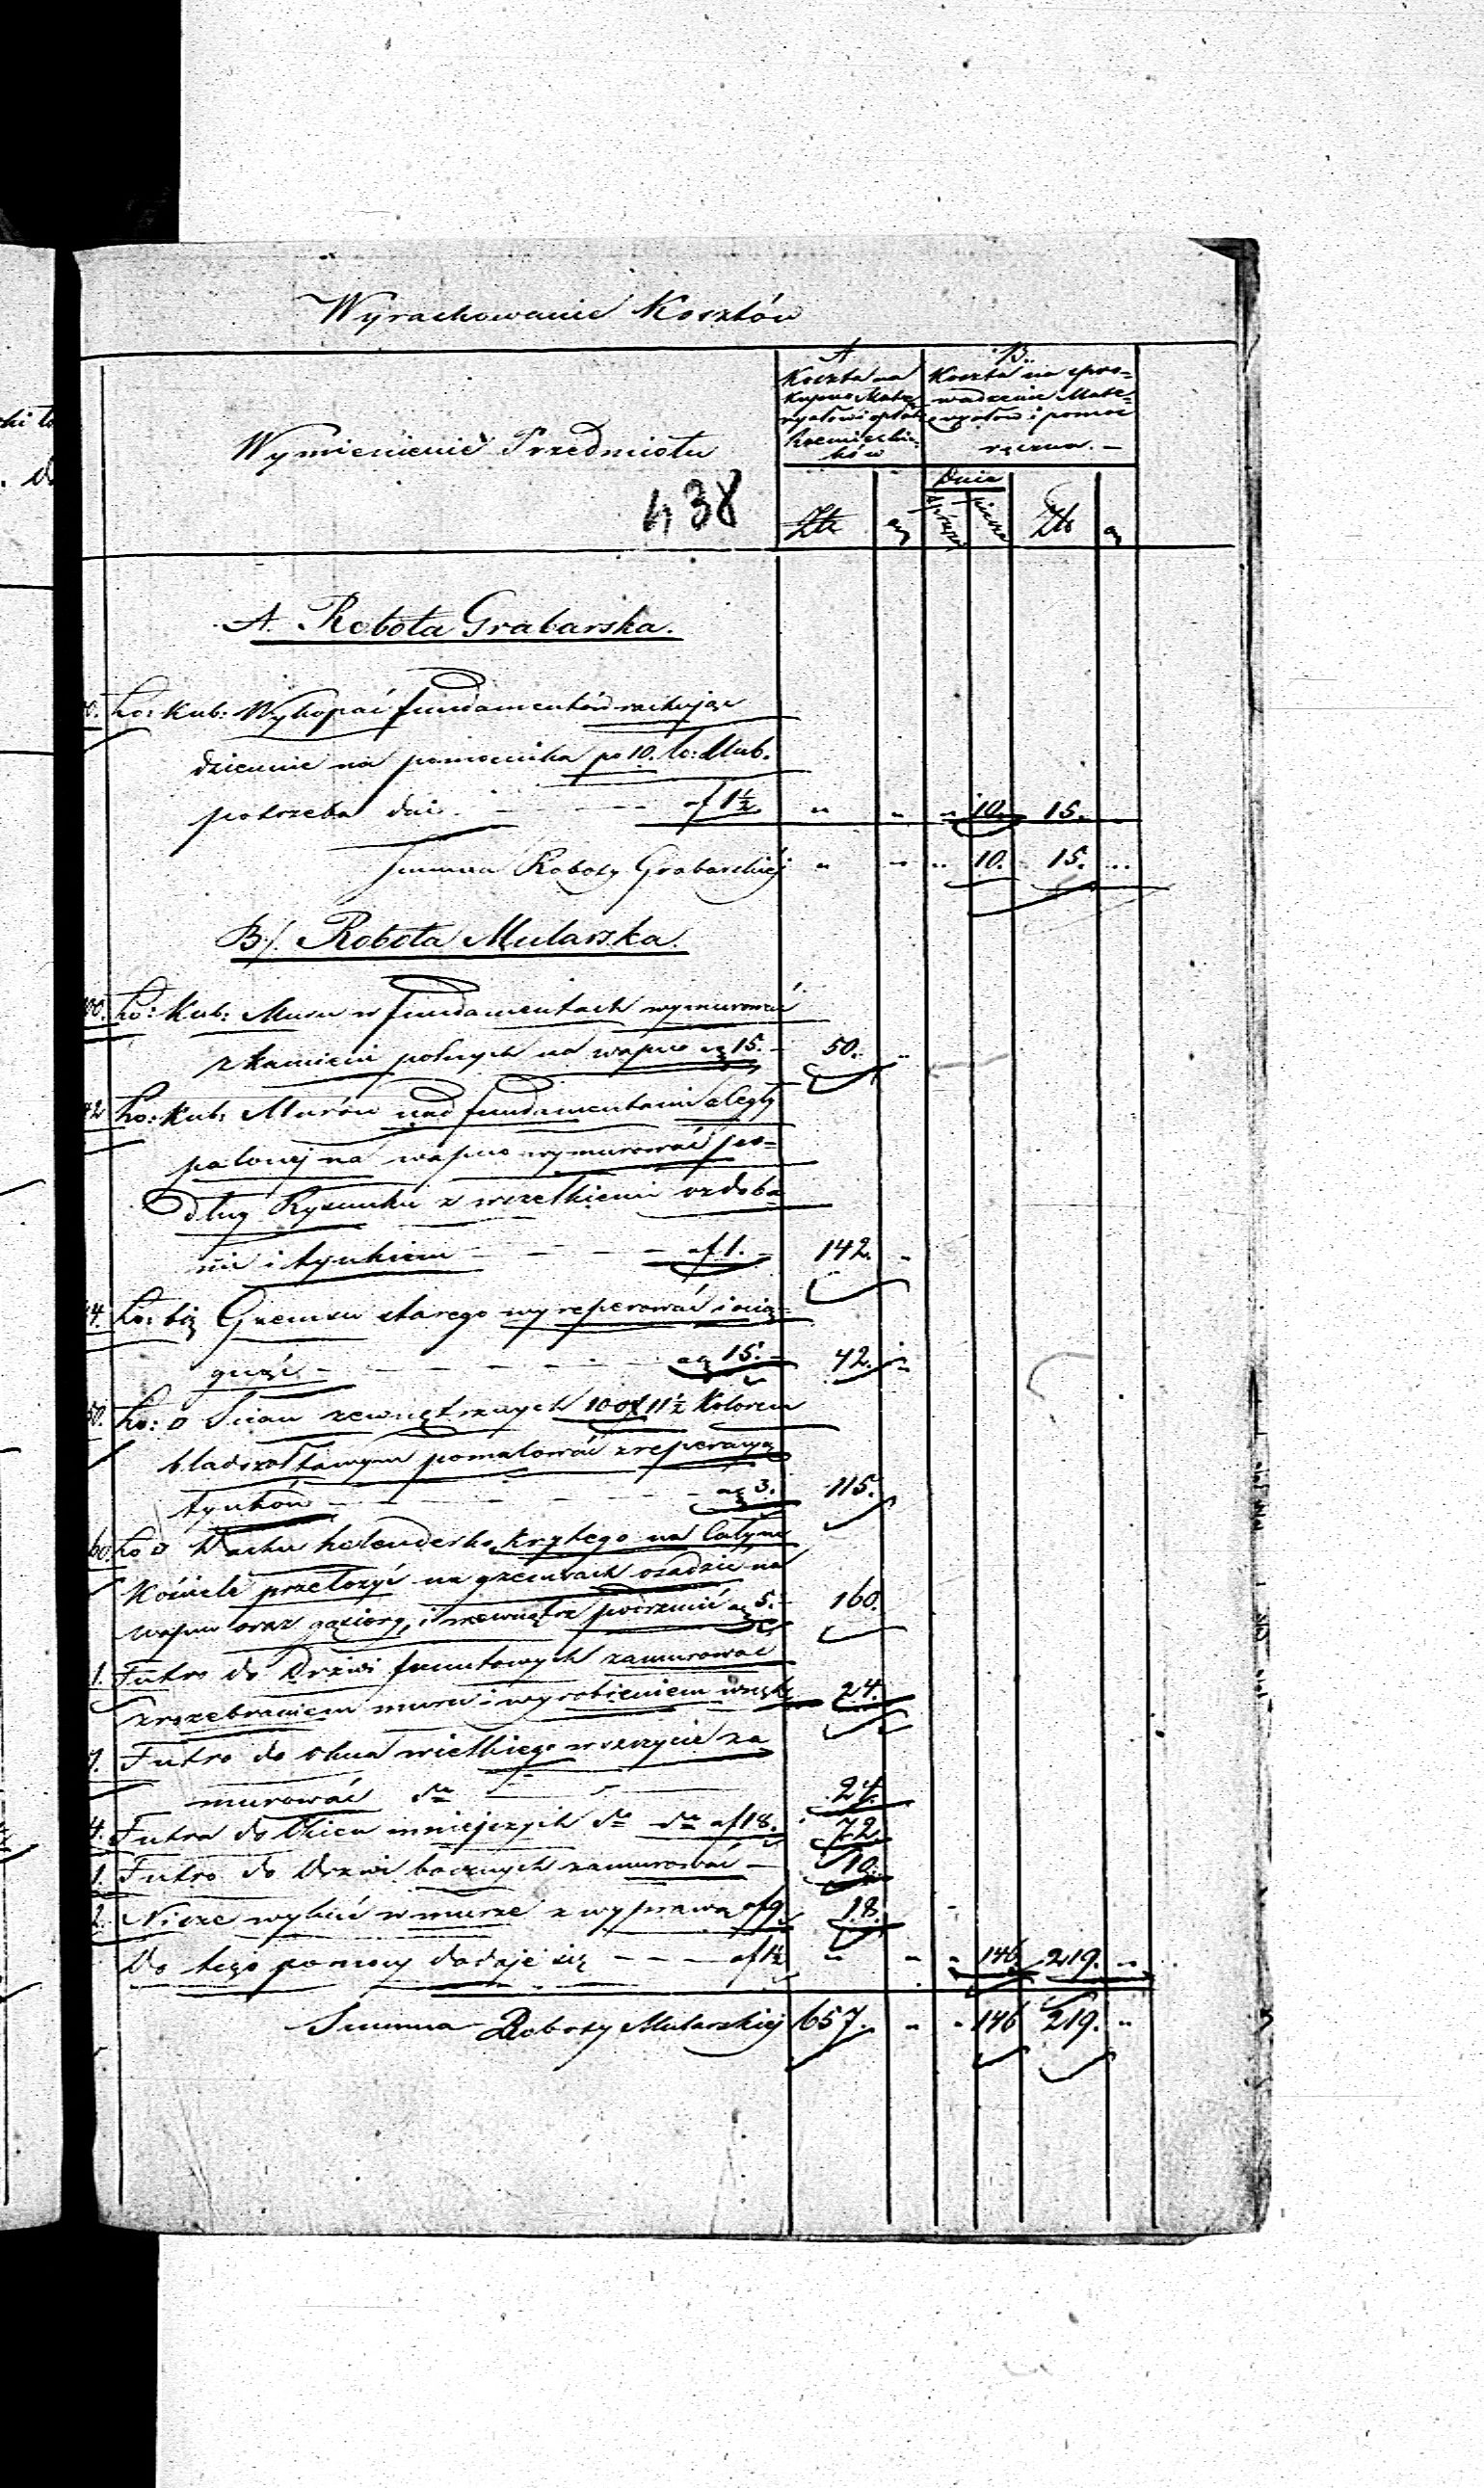 Wyrachowanie Kosztów
A
Koszta na
kupno Mate
ryałów i opłat
Rzemieślni-
ków
B.
Koszta na spro=
wadzenie Mate=
ryałów i pomoc
ręczna. –
Wymienienie Przedmiotu
438
Dnie
Złt g Złt g
A. Robota Grabarska.
Ło: kub: Wykopać fundamentów rachując
dziennie na pomocnika po 10. Ło: Kub.
potrzeba dni. – – – af 1½ " " " 10. 15. "
Summa Roboty Grabarskiej " " " 10. 15. "
B/. Robota Mularska.
00. Ło: Kub: Muru w fundamentach wymurować
z kamieni polnych na wapno ag 15. – 50. "
42 Ło: Kub: Murów nad fundamentami z Cegły
palonej na wapno wymurować po=
dług Rysunku z wszelkiemi ozdoba
mi i tynkiem – – – af 1. – 142. "
4. Ło: bię Gzemsu starego wyreperować i ocią=
gnąć – – – – ag 15. – 42. "
50. Ło: □ Ścian zewnętrznych 100 11½ Kolorem
bladożółtawym pomalować z reperacyą
tynków – – – – ag 3. 115.
60. Ło □ Dachu holendersko krytego na Całym
Kościele przełożyć na gzemsach osadzić na
wapno oraz gąsiory, i wewnątrz podrzucić ag 5. – 160.
1. Futro do Drzwi zamurować
z rozebraniem muru i wyrobieniem 24.
1. Futro do okna wielkiego w szczycie za
murować do – – 24.
4. Futra do Okien mniejszych do do af 18. 72.
1. Futro do Drzwi bocznych zamurować – 10.
2. Nisze wybić w murze z wyprawą af 9. 18.
Do tego pomocy dodaje się – – – af 1½ " " " 146. 219. "
Summa Roboty Mularskiej 657. " " 146 219. "